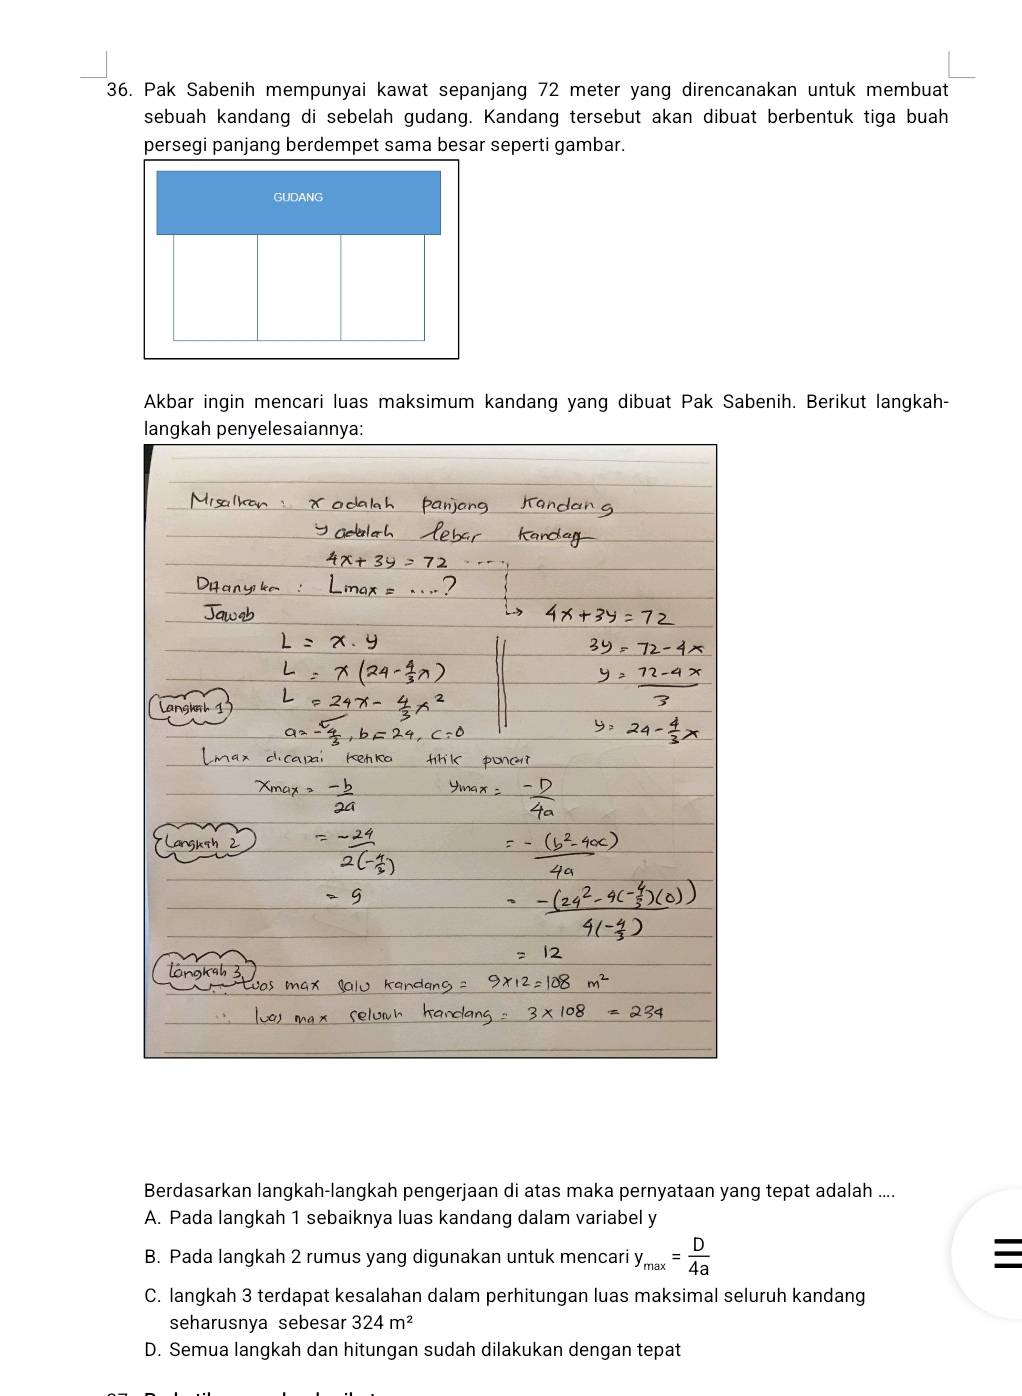 36. Pak Sabenih mempunyai kawat sepanjang 72 meter yang direncanakan untuk membuat
sebuah kandang di sebelah gudang. Kandang tersebut akan dibuat berbentuk tiga buah
persegi panjang berdempet sama besar seperti gambar.
GUDANG
Akbar ingin mencari luas maksimum kandang yang dibuat Pak Sabenih. Berikut langkah-
langkah penyelesaiannya:
Misalkan : x adalah panjang kandang
y adalah lebar kandang
4x + 3y = 72 ....
Ditanyakan : Lmax = ....?
Jawab
L = x . y
L = x (24 - 4/3 x)
Langkah 1
L = 24x - 4/3 x²
a = -4/3, b = 24, c = 0
4x + 3y = 72
3y = 72 - 4x
y = 72 - 4x / 3
y = 24 - 4/3 x
Lmax dicapai ketika titik puncak
xmax = -b / 2a
Langkah 2
= -24 / 2(-4/3)
= 9
ymax = -D / 4a
= -(b² - 4ac) / 4a
= -(24² - 4(-4/3)(0)) / 4(-4/3)
= 12
Langkah 3
Luas max satu kandang = 9 x 12 = 108 m²
∴ luas max seluruh kandang = 3 x 108 = 234
Berdasarkan langkah-langkah pengerjaan di atas maka pernyataan yang tepat adalah ....
A. Pada langkah 1 sebaiknya luas kandang dalam variabel y
B. Pada langkah 2 rumus yang digunakan untuk mencari ymax = D / 4a
C. langkah 3 terdapat kesalahan dalam perhitungan luas maksimal seluruh kandang
seharusnya sebesar 324 m²
D. Semua langkah dan hitungan sudah dilakukan dengan tepat